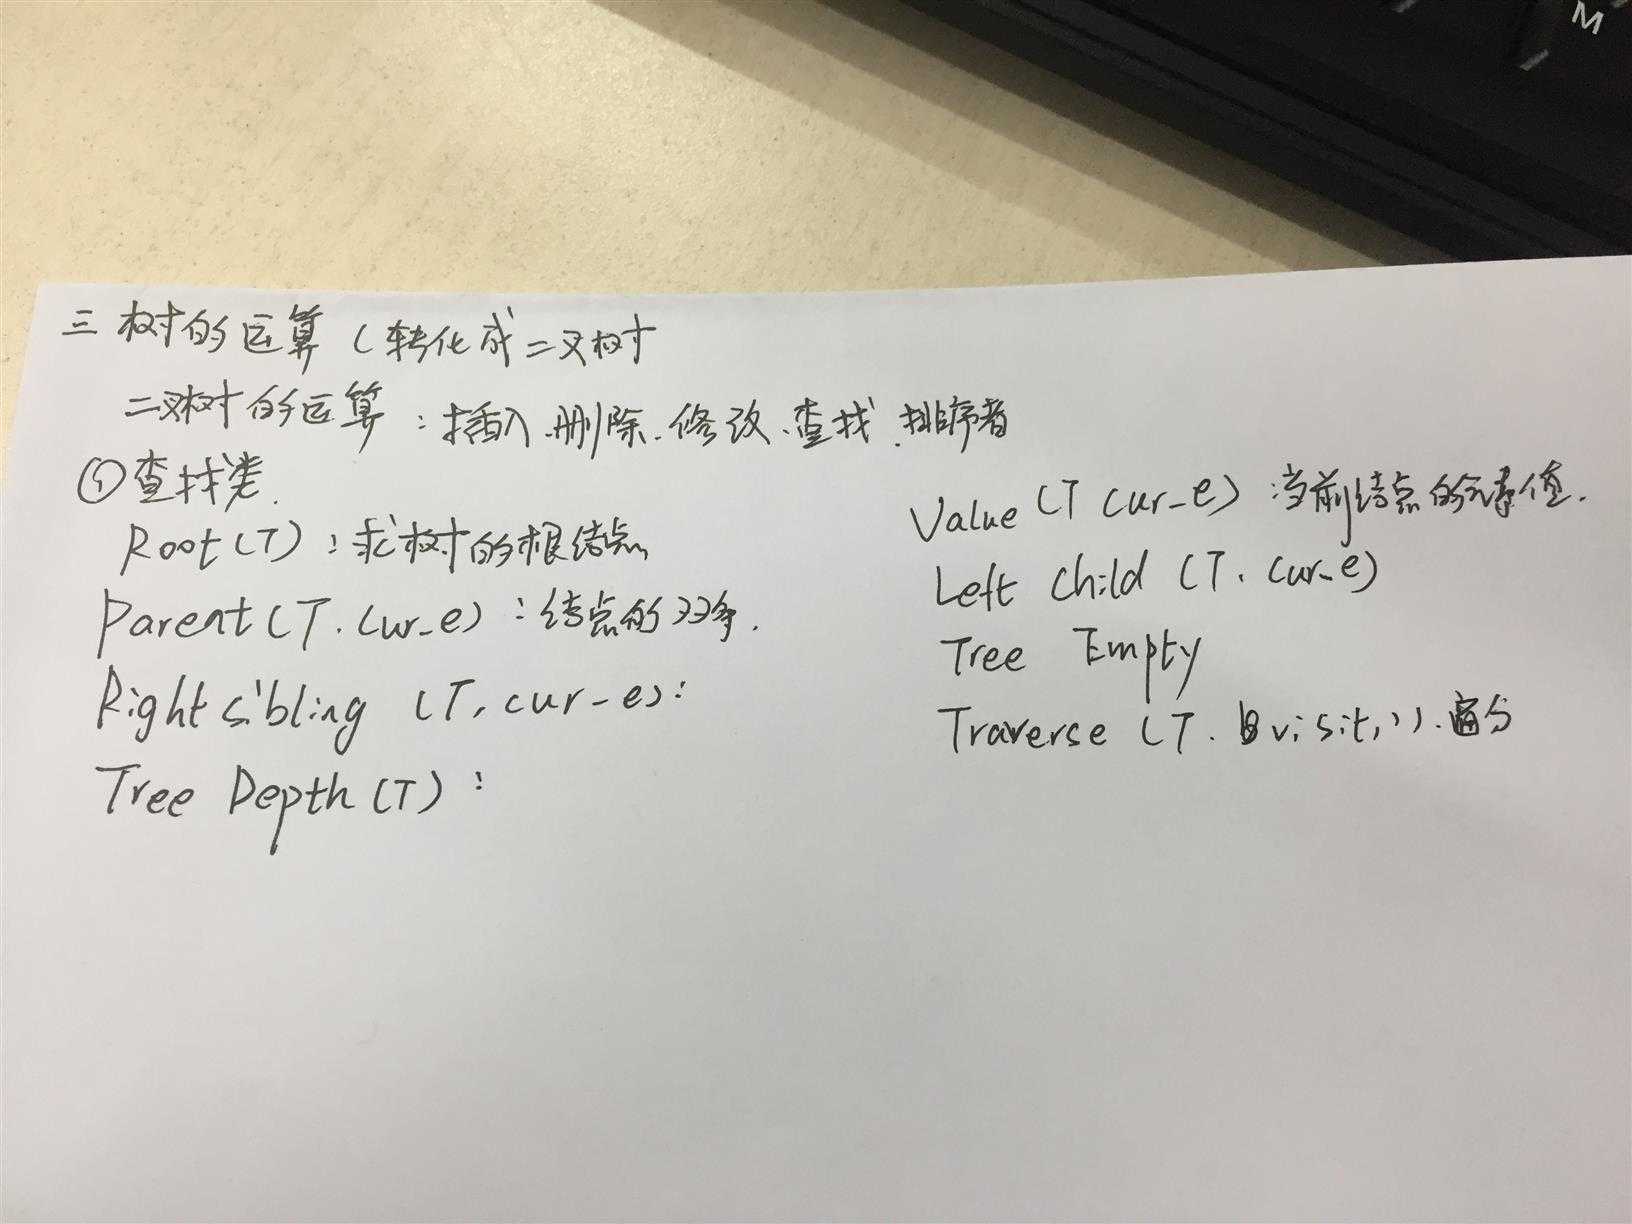 M
三 树的运算 (转化成二叉树
二叉树的运算：插入、删除、修改、查找、排序者
① 查找类.
Root(T)：求树的根结点
Parent(T. cur_e)：结点的双亲.
Right sibling (T, cur-e)：
Tree Depth(T)：
Value (T cur_e)：当前结点的元素值.
Left child (T. cur_e)
Tree Empty
Traverse (T. visit, )).